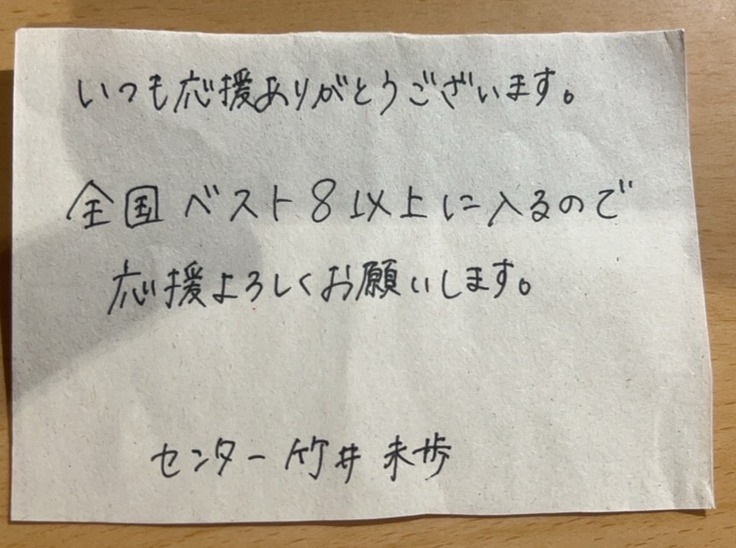 いつも応援ありがとうございます。
全国ベスト8以上に入るので
応援よろしくお願いします。
センター 竹井 未歩